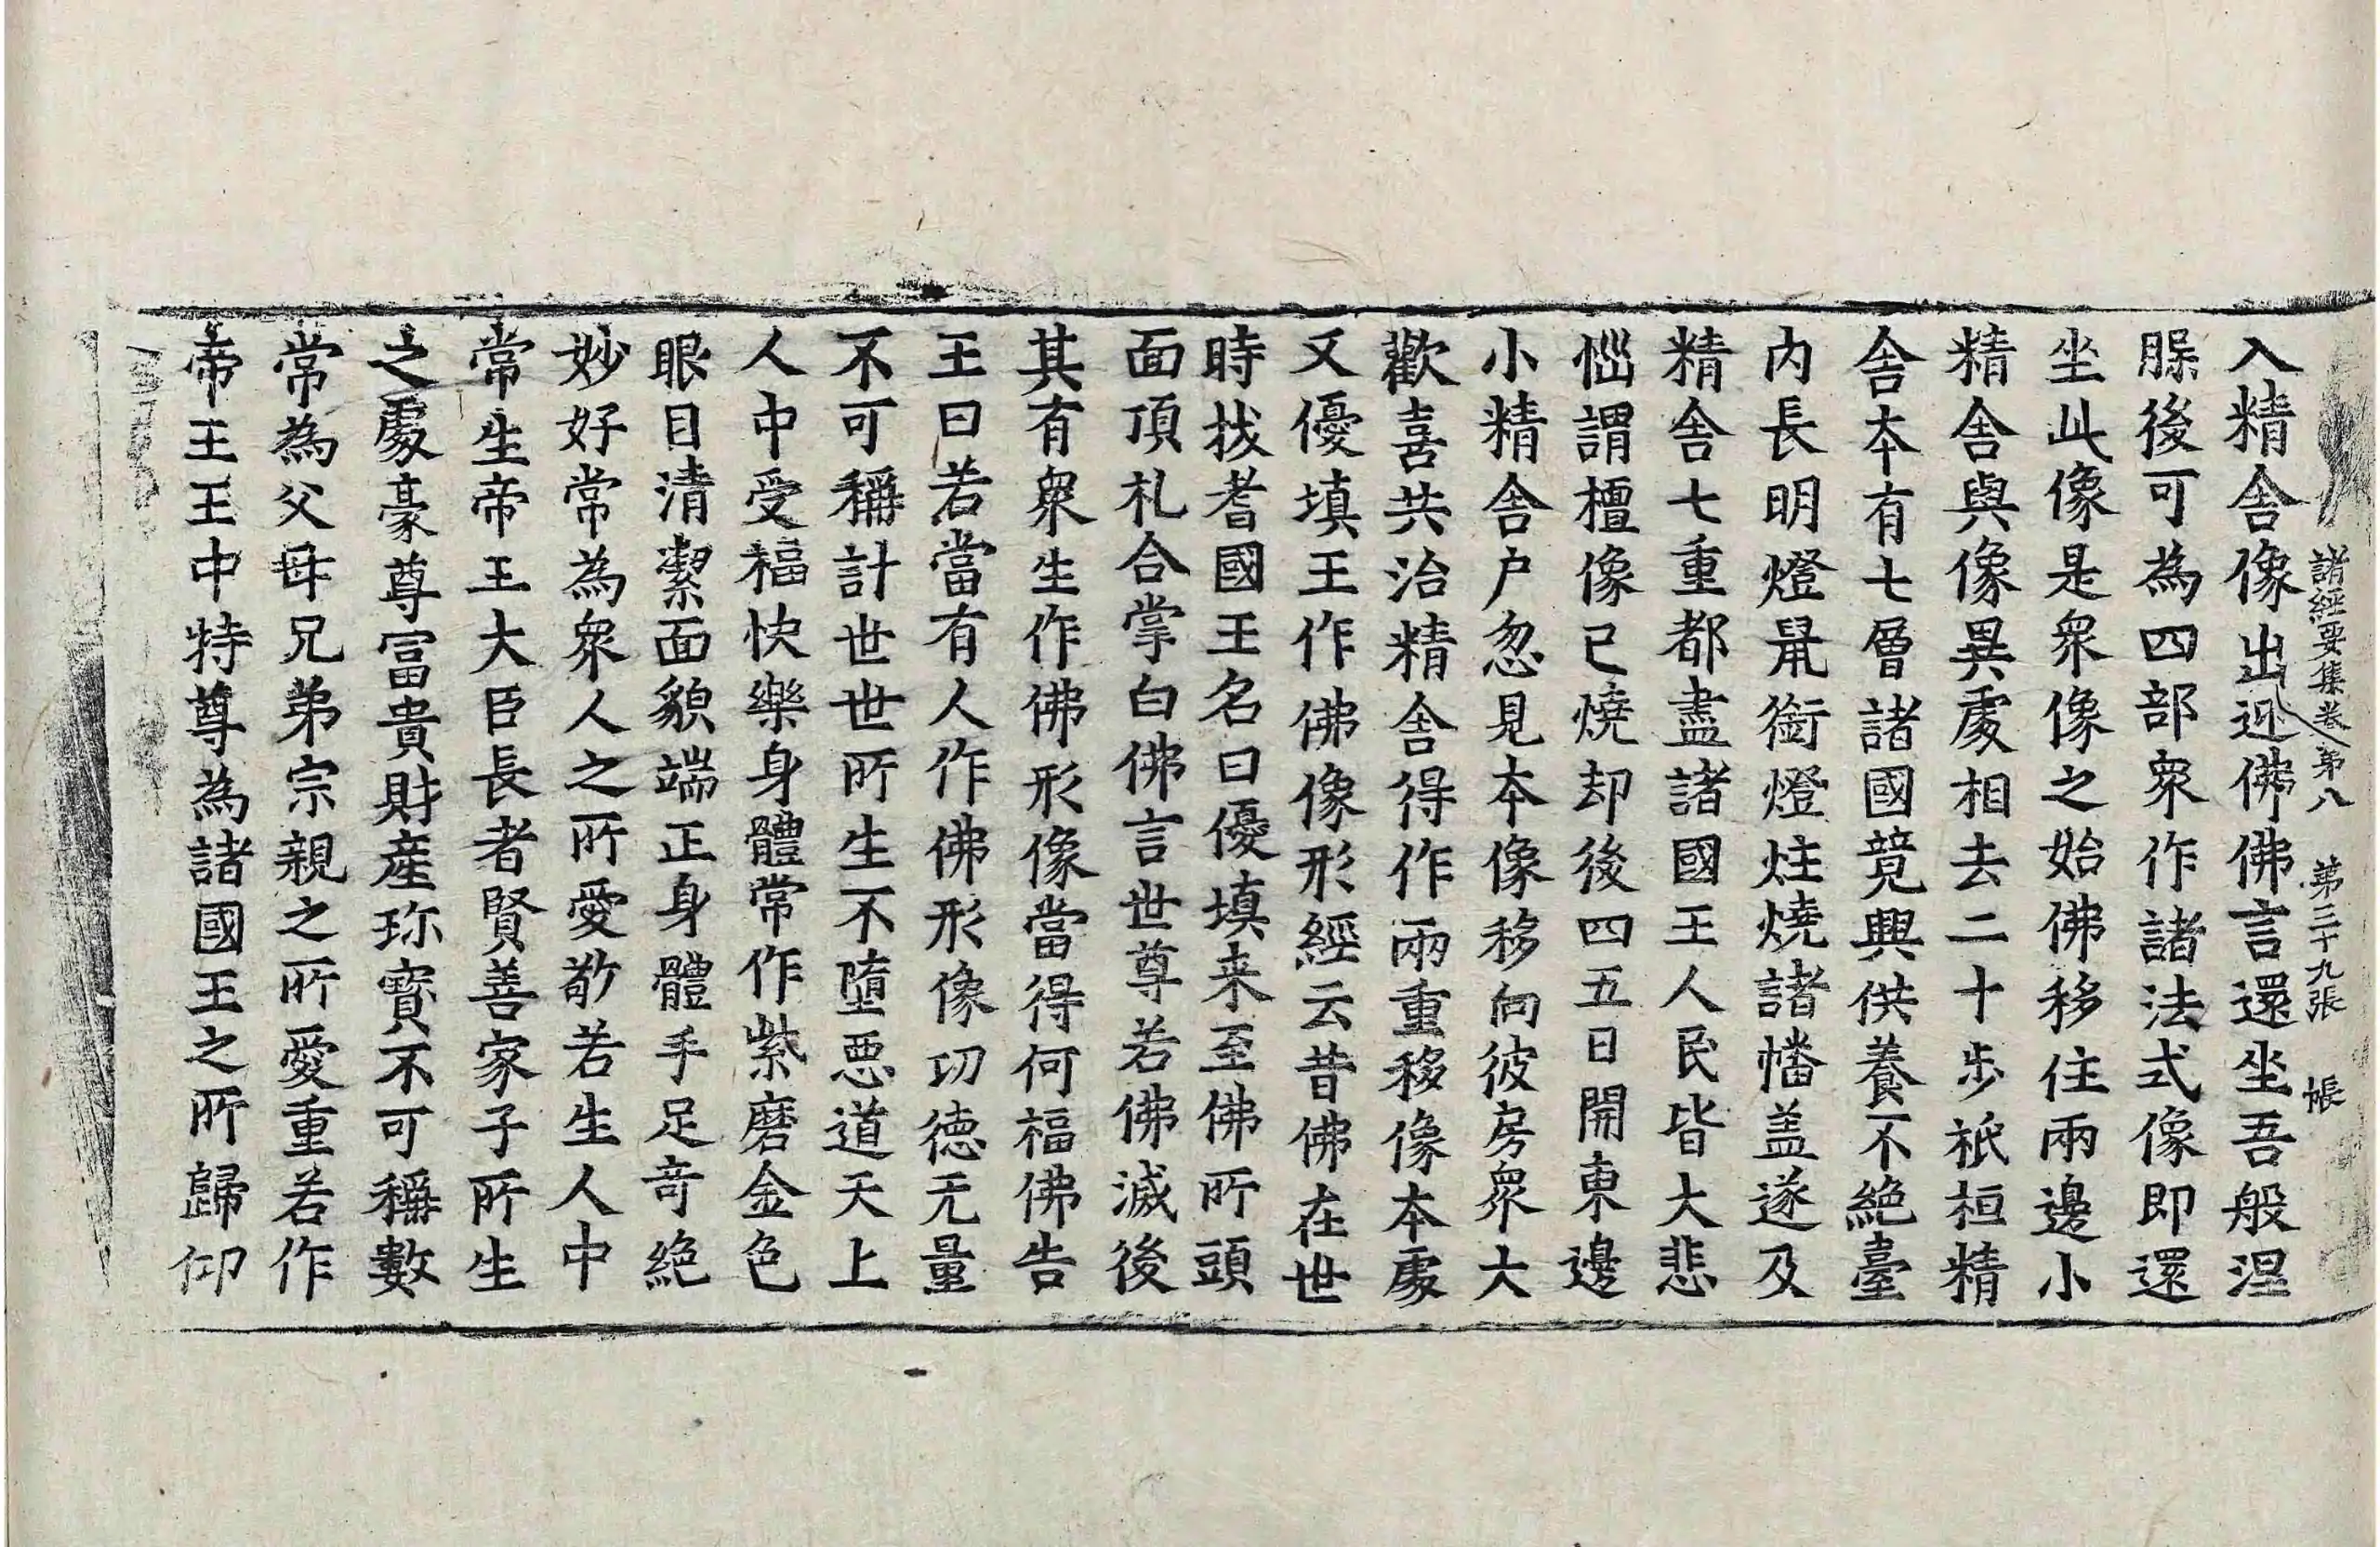 諸經要集卷第八 第三十九張 帳
入精舍像出迎佛佛言還坐吾般涅
腂後可為四部衆作諸法式像即還
坐此像是衆像之始佛移住兩邊小
精舍與像異處相去二十步祇桓精
舍本有七層諸國競興供養不絕臺
内長明燈鼠銜燈炷燒諸幡盖遂及
精舍七重都盡諸國王人民皆大悲
惱謂檀像已燒却後四五日開東邊
小精舍户忽見本像移向彼房衆大
歡喜共治精舍得作兩重移像本處
又優填王作佛像形經云昔佛在世
時拔耆國王名曰優填来至佛所頭
面頂礼合掌白佛言世尊若佛滅後
其有衆生作佛形像當得何福佛告
王曰若當有人作佛形像功德无量
不可稱計世世所生不墮惡道天上
人中受福快樂身體常作紫磨金色
眼目清潔面貌端正身體手足奇絕
妙好常為衆人之所愛敬若生人中
常生帝王大臣長者賢善家子所生
之處豪尊富貴財產珎寶不可稱數
常為父母兄弟宗親之所愛重若作
帝王王中特尊為諸國王之所歸仰